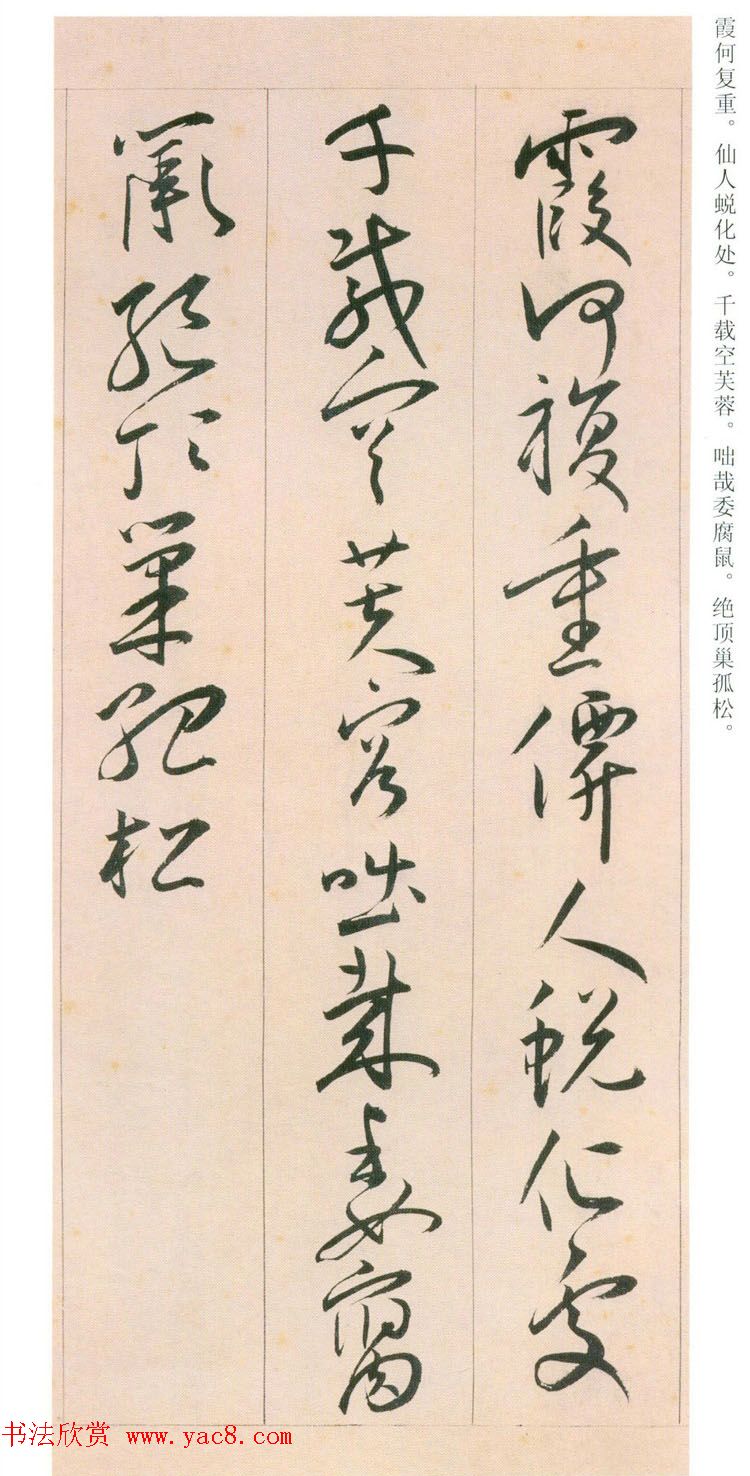 霞何复重。仙人蜕化处。千载空芙蓉。咄哉委腐鼠。绝顶巢孤松。
霞何複重僊人蛻化處
千載空芙容咄哉委腐
鼠絕頂巢孤松
书法欣赏 www.yac8.com